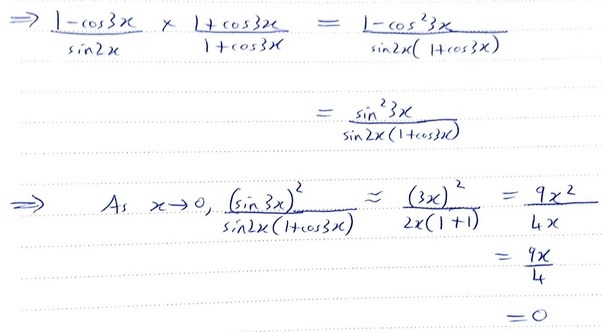 ⇒ (1-cos3x)/(sin2x) × (1+cos3x)/(1+cos3x) = (1-cos²3x)/(sin2x(1+cos3x))
= (sin²3x)/(sin2x(1+cos3x))
⇒ As x→0, (sin3x)²/(sin2x(1+cos3x)) ≈ (3x)²/(2x(1+1)) = 9x²/4x
= 9x/4
=0